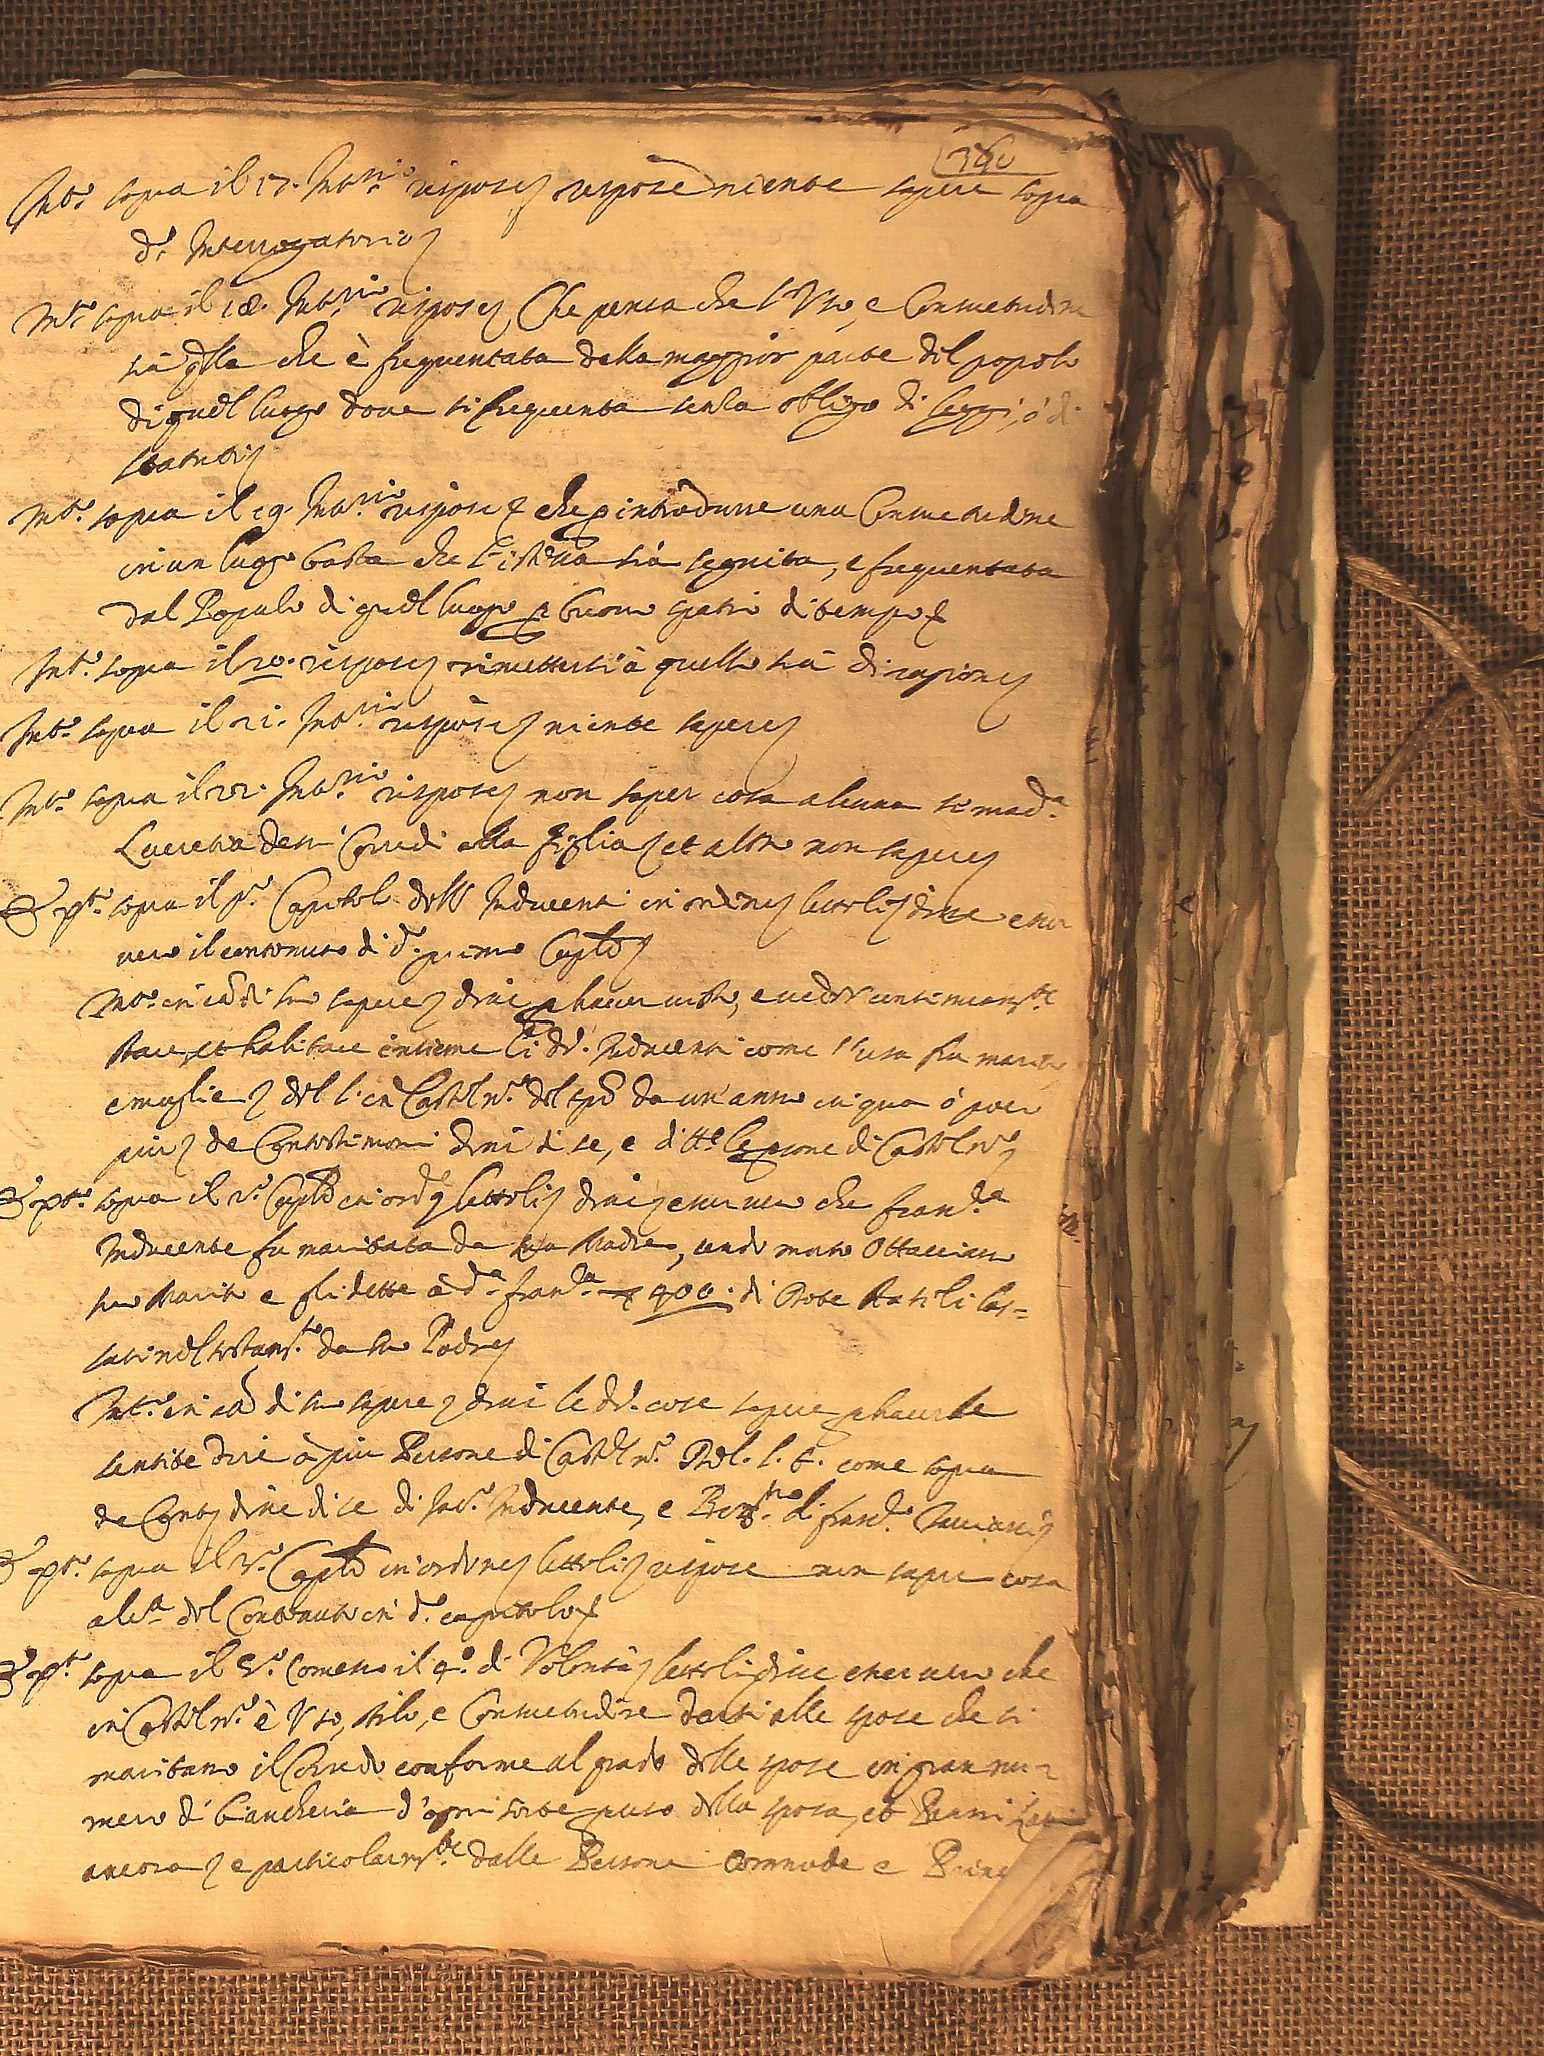 340
Int.o sopra il 17. Int.rio rispose rispose niente sapere sopra
d.o Interrogatorio
Int.o sopra il 18. Int.rio rispose Che pensa che l'Uso, e Consuetudine
sia q.lla che è frequentata dalla maggior parte del popolo
di quel luogo dove si frequenta senza obligo di leggi, ò di
statuti
Int.o sopra il 19. Int.rio rispose che p introdurre una Consuetudine
in un luogo basta che l'istessa sia seguita, e frequentata
dal Popolo di quel luogo p buono spatio di tempo
Int.o sopra il 20. rispose rimettersi à quello sia di ragione
Int.o sopra il 21. Int.rio rispose niente sapere
Int.o sopra il 22. Int.rio rispose non saper cosa alcuna se mad.a
Lucretia dessi Corredi alla figlia et altro non sapere
Et p.to sopra il p.o Capitolo delli Inducenti in ordine lettoli disse esser
vero il contenuto di d.o primo Cap.lo
Int.o in ca di suo sapere disse p haver visto, e veder continuam.te
stare, et habitare insieme li dd. Inducenti come
e moglie del l. in Castel n.o del tpo da un anno in qua ò poco
più de Contestimoni disse di se, e di tt.e le psone di Castel n.o
Et p.to sopra il 2.o Cap.lo in ord.e lettoli disse esser vero che Fran.ca
Inducente fu maritata da sua Madre, sendo morto Ottaviano
suo Marito e gli dette à d.a Fran.ca 400. di Dote las-
sati nel testam.to da suo Padre
Int.o in ca di suo sapere disse le dd. cose sapere p haverle
sentite dire à più Persone di Castel n.o Del. l. t. come sopra
de Cont. disse di se di Inducente, e di Fran.co
Et p.to sopra il 3.o Cap.lo in ordine lettoli rispose non saper cosa
alc.a del Contenuto in d.o capitolo
Et p.to sopra il 5.o Comesso il 4.o di Volontà lettoli disse esser vero che
in Castel n.o è Uso, stilo, e Consuetudine darsi alle spose che si
maritano il Corredo conforme al grado delle spose in gran nu-
mero di biancheria d'ogni sorte p uso della sposa, et Panni
ancora e particolarm.te dalle Persone Commode e